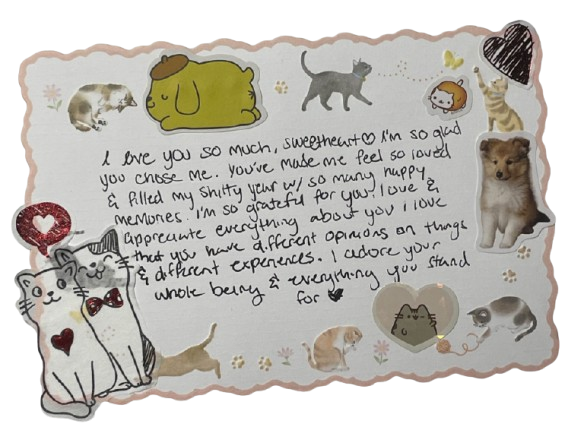 I love you so much, sweetheart♡ I'm so glad
you chose me. You've made me feel so loved
& filled my shitty year w/ so many happy
memories. I'm so grateful for you. I love &
appreciate everything about you. I love
that you have different opinions on things
& different experiences. I adore your
whole being & everything you stand
for ♥